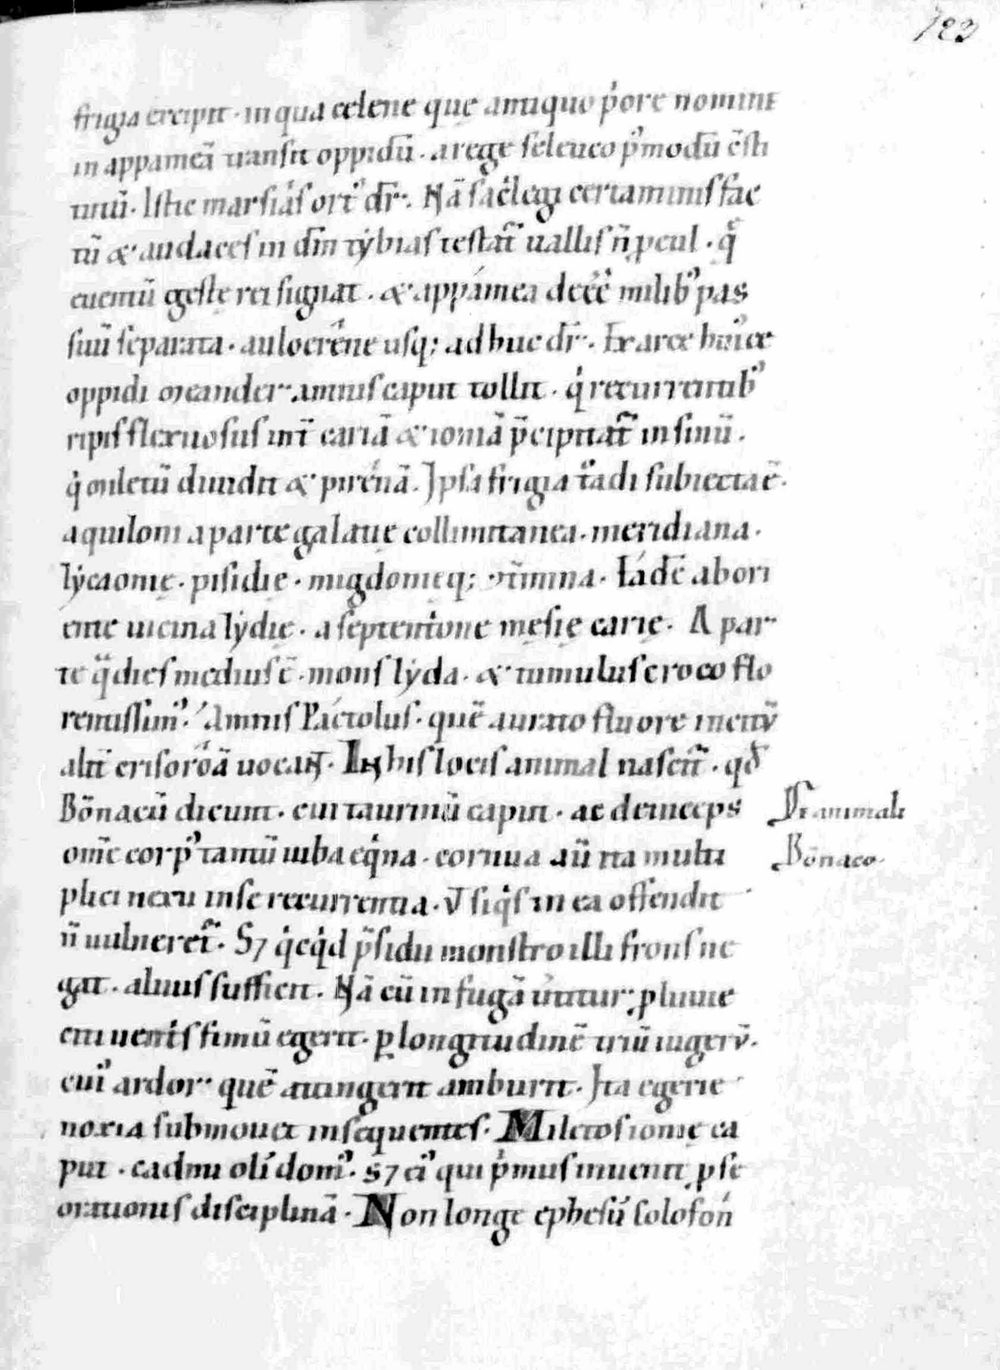 123
frigia excipit · in qua celene quę antiquo p̓ore nomine
in appameā transit oppidū · a rege seleuco p̓modū c̄sti
tutū · Istic marsias ort᷒ dr̄ · Nā sac̓legi certaminis fac
tū & audaces in dm̄ tybias testat᷒ uallis n̄ p̱cul · q̄
euentū gestę rei signat · & appámea dece᷒ milib᷒ pas
suū separata · aulocrene usq; ad huc dr̄ · Ex arce hui᷒ce
oppidi meander amnis caput tollit · q̓ recurrentib᷒
ripis flexuosus int̄ cariā & ioniā p̄cipitat᷒ in sinū ·
q̓ miletū diuidit & pirenā · Ipsa frigia t̓adi subiecta ē ·
aquiloni a parte galatię collimitanea · meridiana ·
lycaonię · pisidie · migdonięq; t̄mina · Eádē ab ori
ente uicina lydię · a septent̓one mesię carię · A par
te q̄ dies medius ē · mons lyda · & tumulus croco flo
rentissim᷒ · Amnis Páctolus · quē aurato fluore incitū
alit̄ crisoróā uocant · In his locis animal nascit᷒ · qđ
Bōnacū dicunt · cui taurinū caput · ac deinceps
om̄e corp᷒ tantū iuba eq̓na · cornua aū ita multi
plici nexu in se recurrentia · Vt siq̓s in ea offendit
n̄ uulneret᷒ · S7 q̓cq̓d p̄sidii monstro illi frons ne
gat · aluus sufficit · Nā cū in fugā uertitur · p̱luuie
citi uentris fimū egerit · p̱ longitudinē triū iugerū ·
cui᷒ ardor quē attingerit amburit · Ita egerie
noxia submouet insequentes · Miletos ionię ca
put · cadmi olī dom᷒ · s7 ei᷒ qui p̓mus inuenit p̱se
orationis disciplinā · Non longe ephesū colofon
De animali
Bōnaco ·